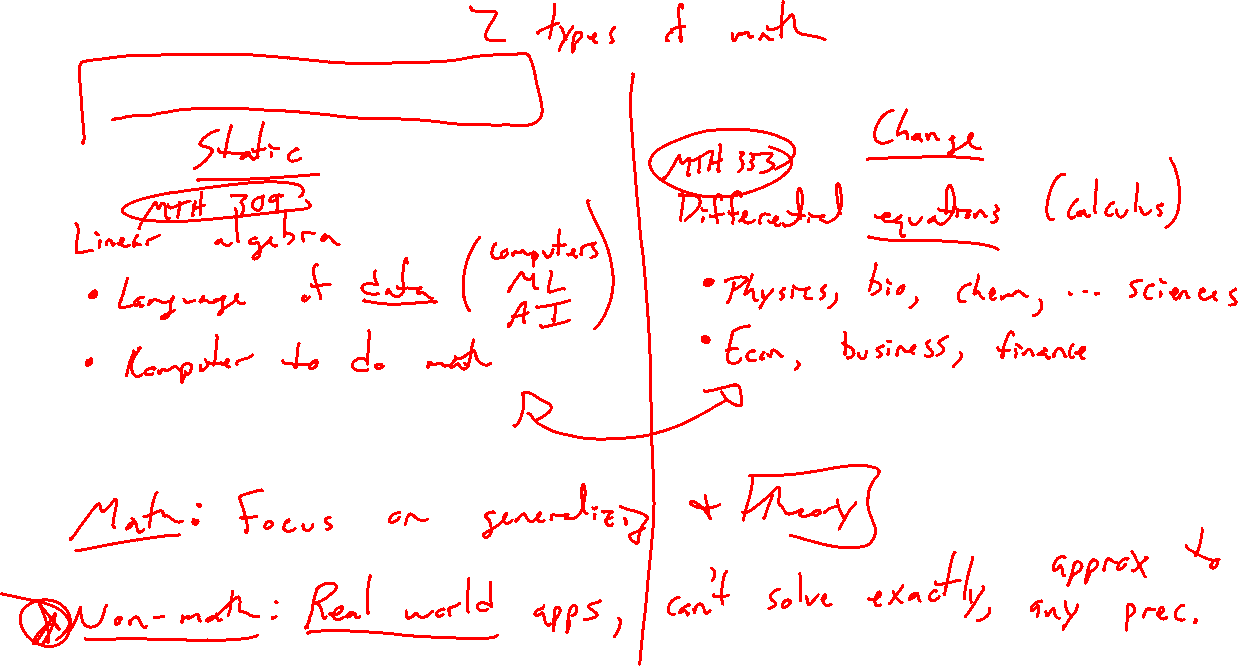 2 types of math
Static
MTH 309
Linear algebra
• Language of data (computers
ML
AI)
• Komputer to do math
Change
MTH 353
Differential equations (calculus)
• Physics, bio, chem, ... sciences
• Econ, business, finance
Math: Focus on generalizing + theory
Non-math: Real world apps, can't solve exactly, approx to
any prec.